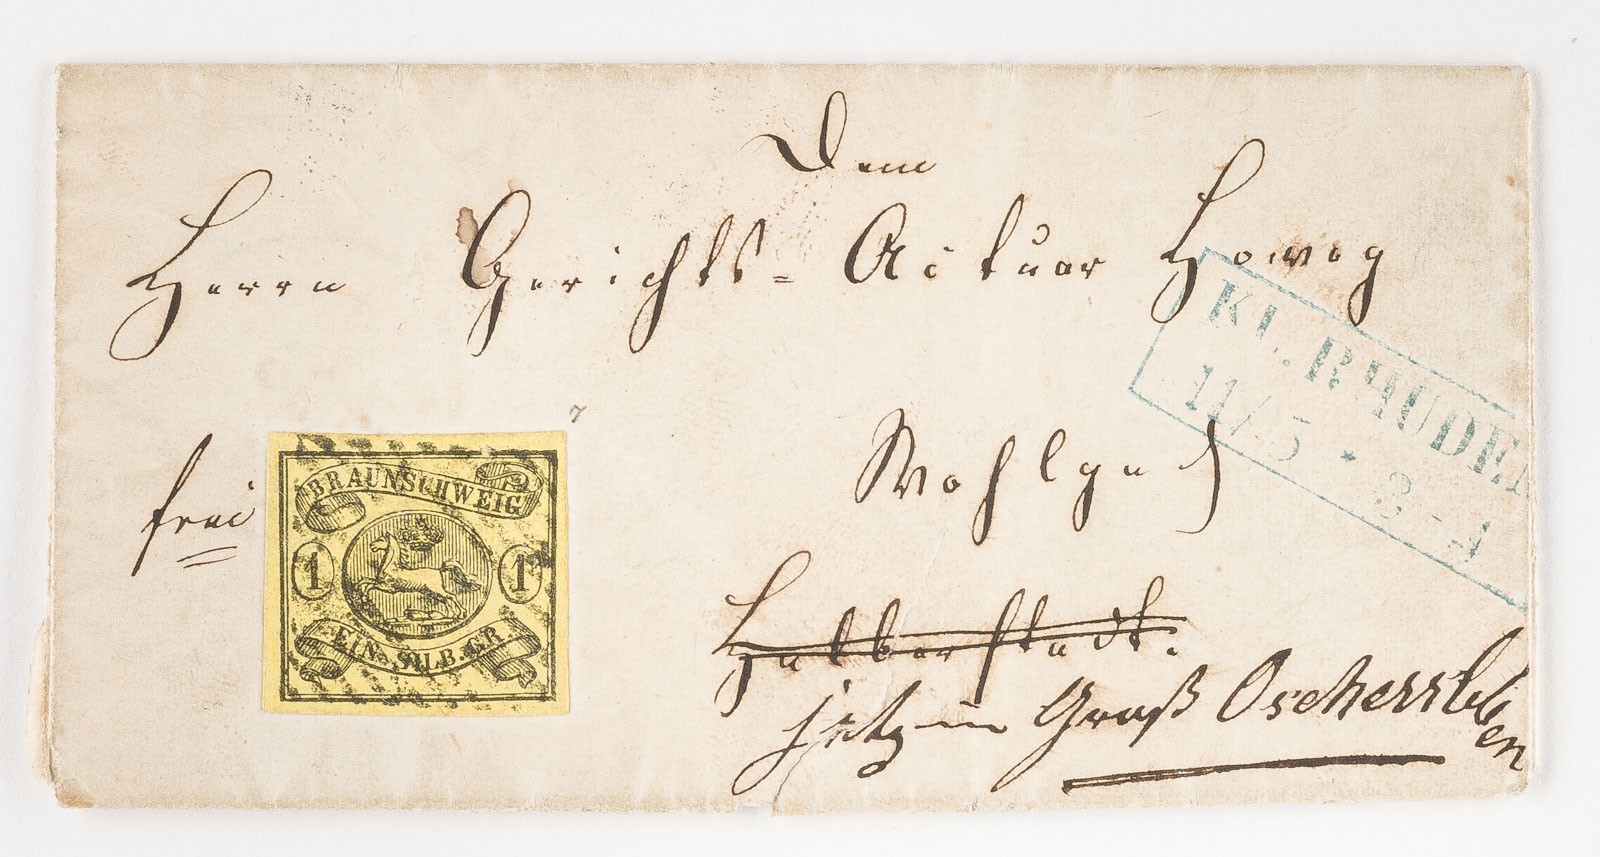 Dem
Herrn Gerichts-Actuar Howeg
KL. RHUDEN
11/5 * 3-4
frei
BRAUNSCHWEIG
1 1
EIN SILB.GR.
Wohlgeb
Halberstadt.
jetz in Groß Oschersleben
7